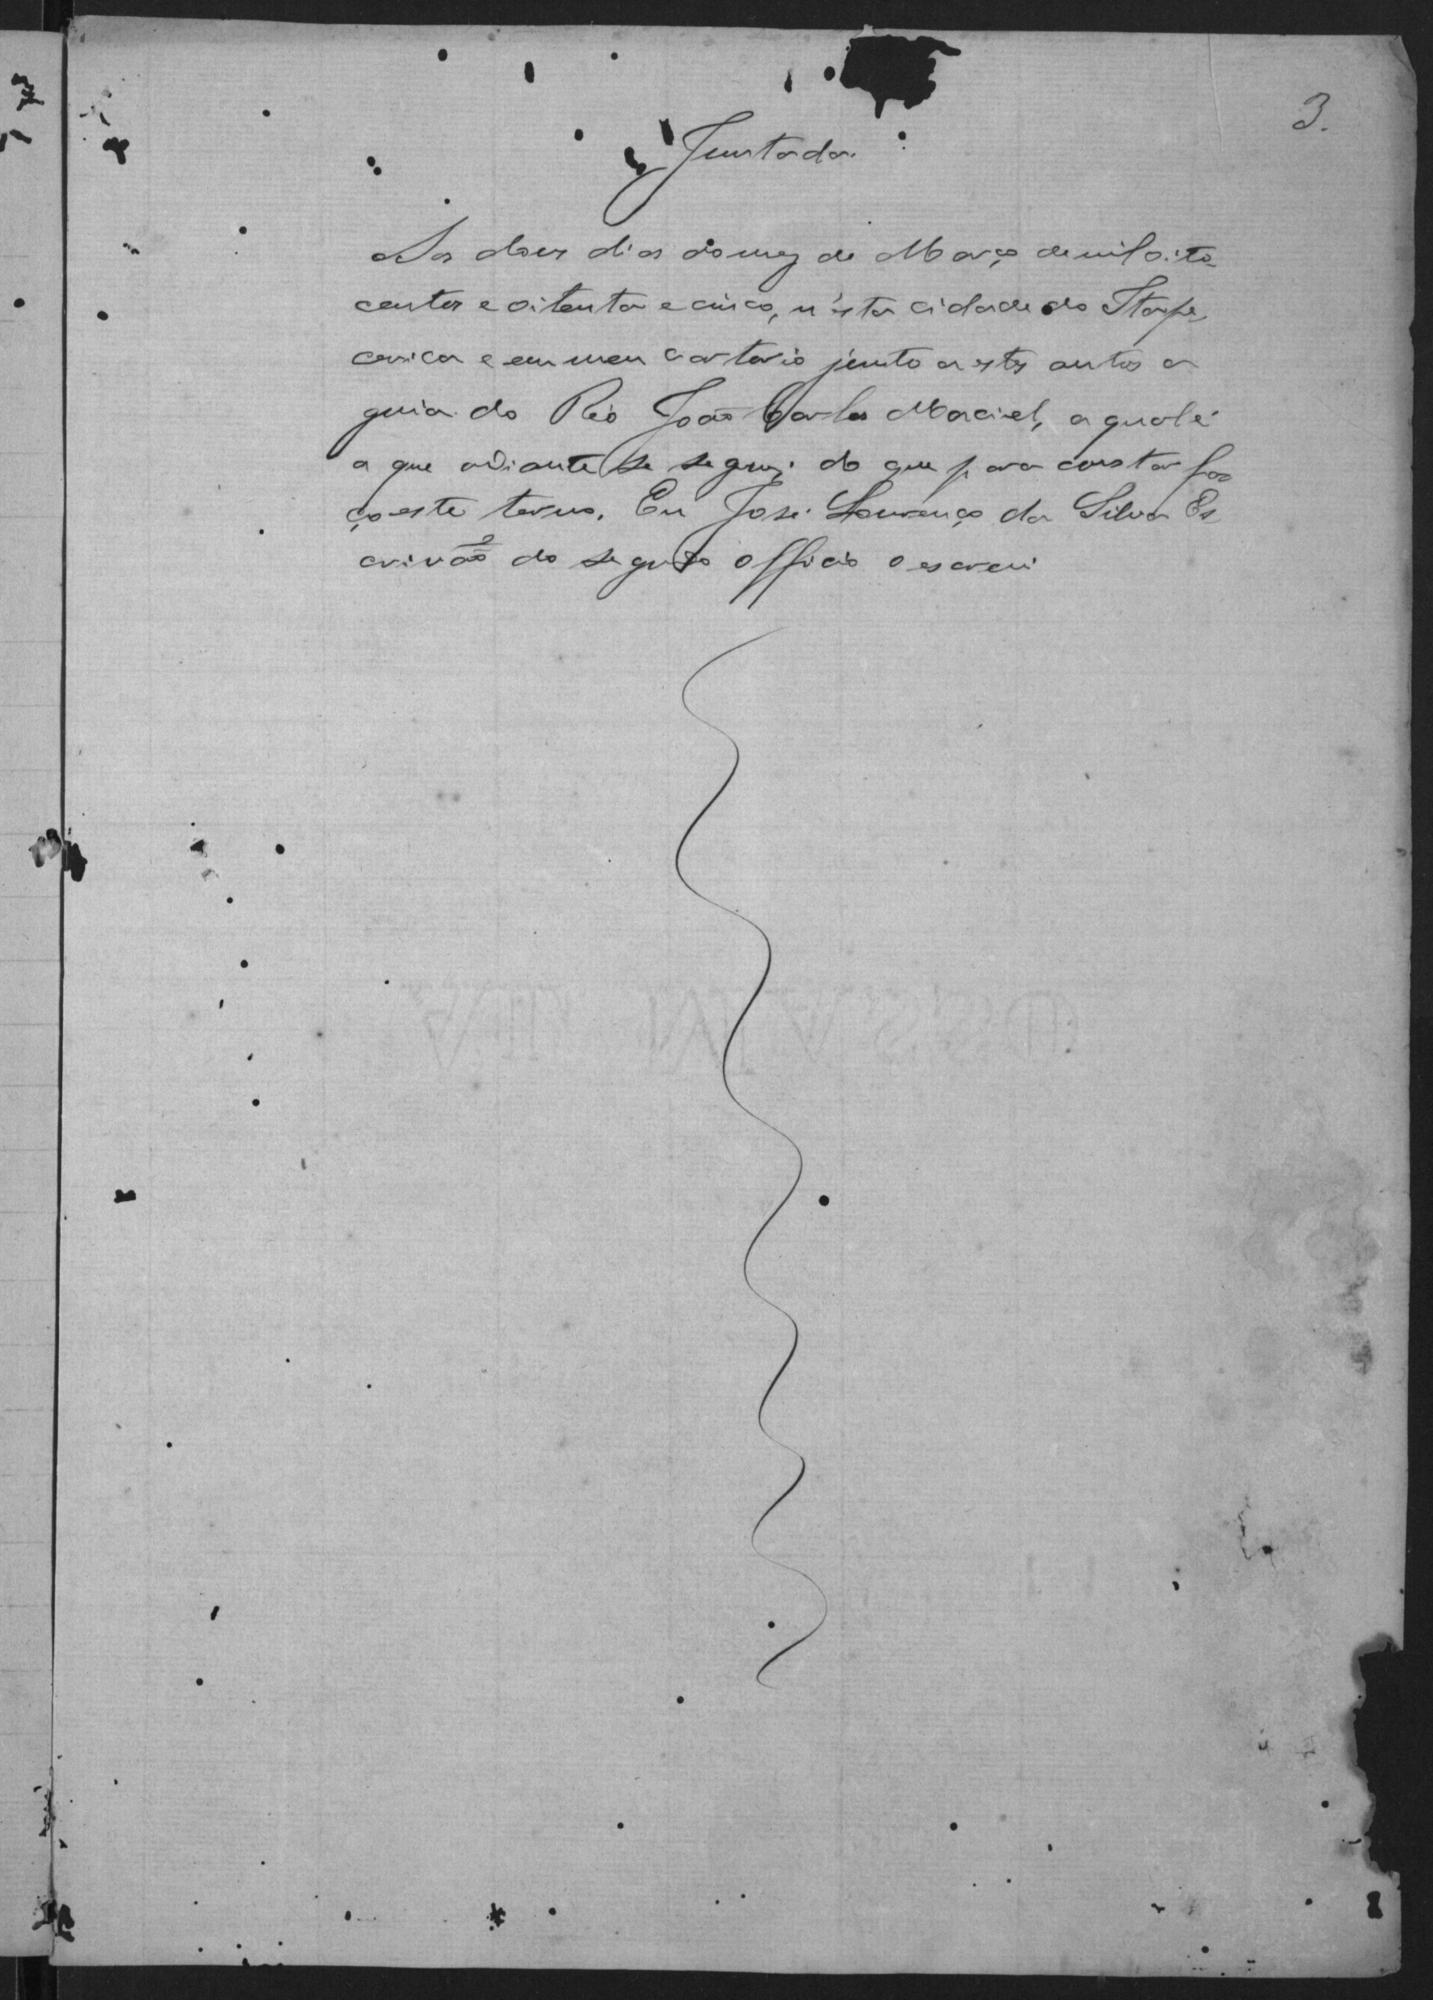 3.
Juntada.
Aos dois dias do mez de Março de mil oito
centos e oitenta e cinco, n'esta cidade do Itape
cerica e em meu cartorio junto a estes autos a
guia do Réo João Carlos Maciel, a qual é
a que adiante se segue; do que para constar fa
ço este termo. Eu José Lourenço da Silva Es
crivão do segundo officio o escrevi